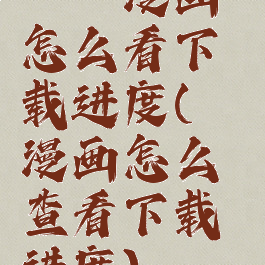 漫画
怎么看下
载进度(
漫画怎么
查看下载
进度)